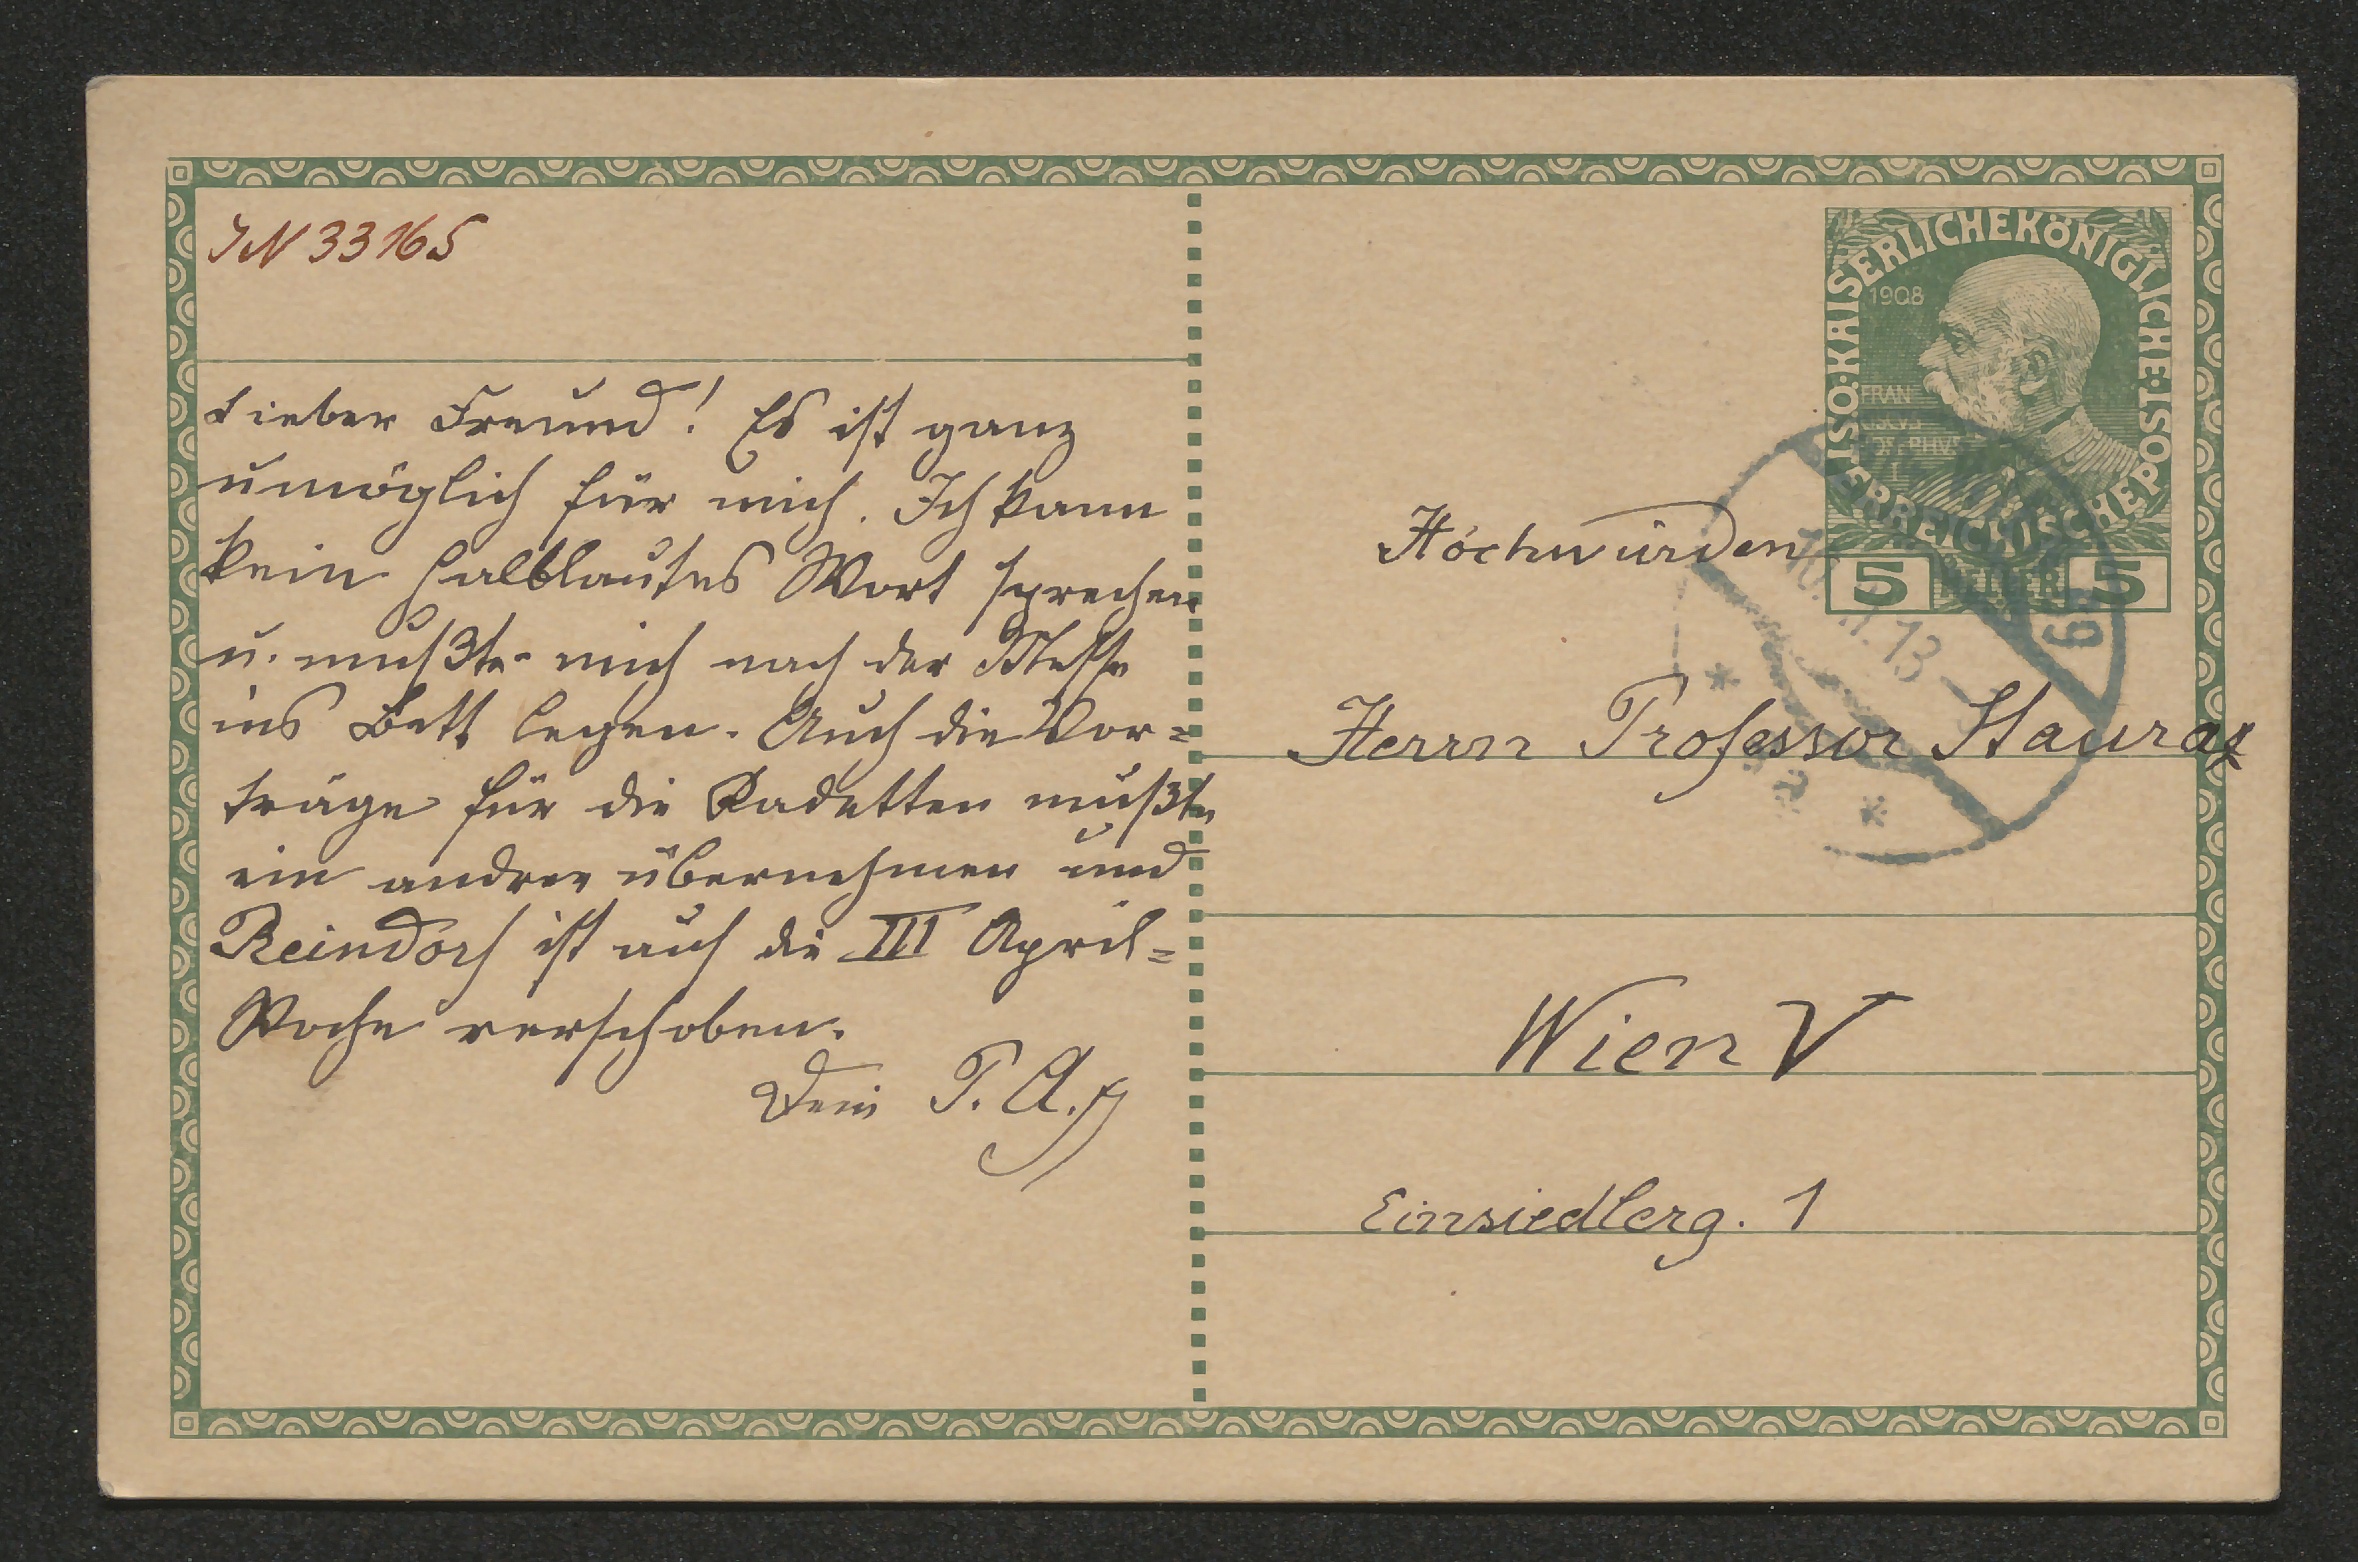 IN 33165
Lieber Freund! Es ist ganz
unmöglich für mich. Ich kann
kein halblautes Wort sprechen
u. mußte mich nach der Messe
ins Bett legen. Auch die Vor=
träge für die Kadetten mußte
ein andrer übernehmen und
Reindorf ist auf die III April=
Woche verschoben.
Dein P. A.
KAISERLICHEKÖNIGLICHE
ÖSTERREICHISCHEPOST
1908
FRAN
5 HELLER 5
13
Hochwürden
Herrn Professor Stauracz
Wien V
Einsiedlerg. 1